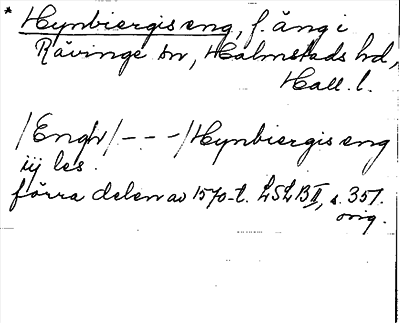 * Hynbiergis eng, f. äng i
Rävinge sn, Halmstads hd,
Hall. l.
/Engh/ – – –/Hynbiergis eng
iij les.
förra delen av 1570-t. LSLB II, s. 357.
orig.